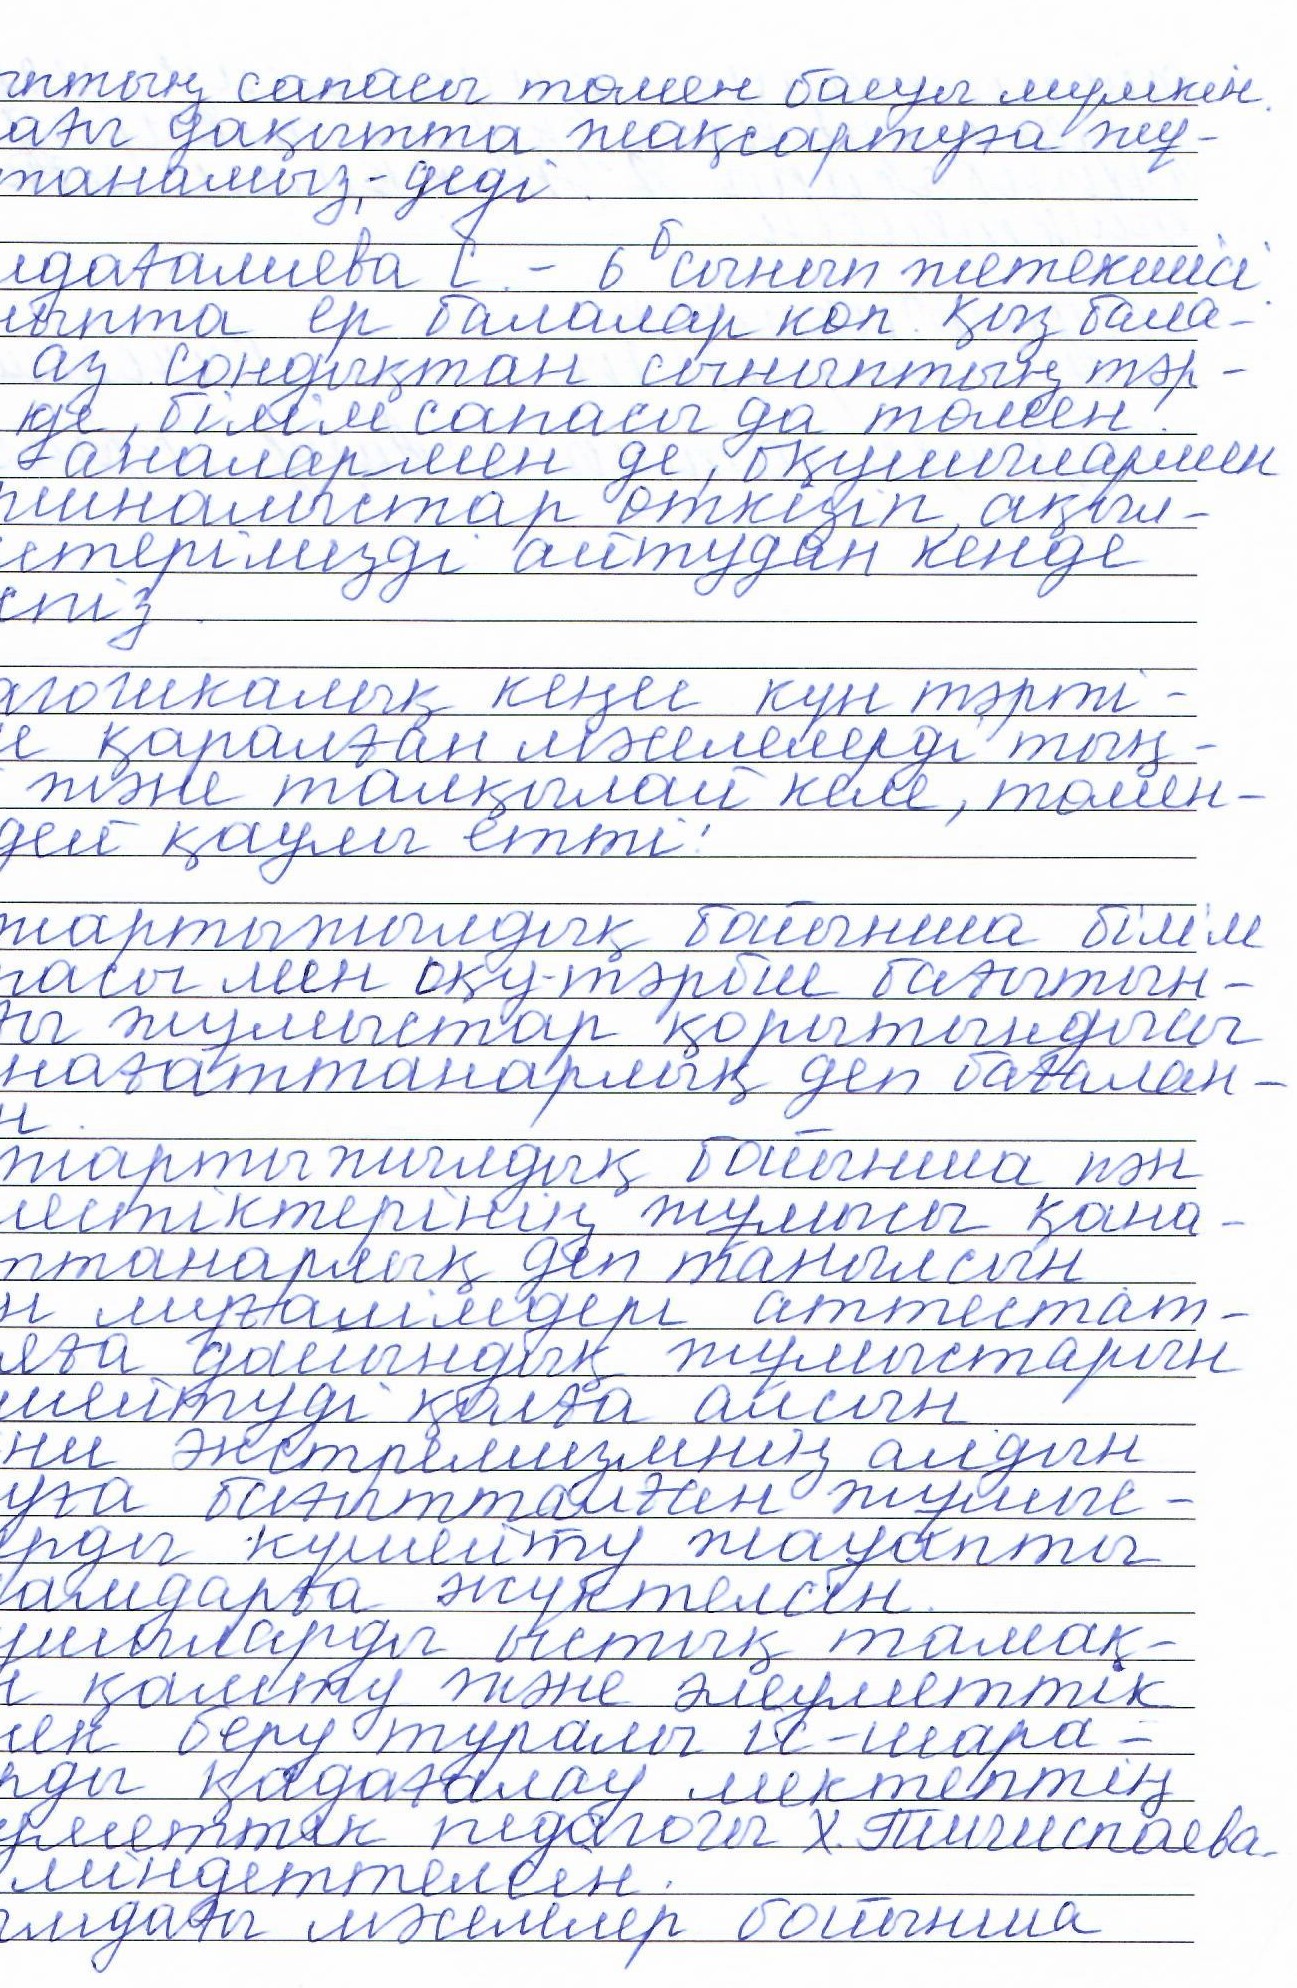 ыптың сапасы төмен болуы мүмкін.
ағы уақытта жақсартуға жұ-
танамыз,- деді.
лдағалиева С. - 6 б сынып жетекшісі.
ныпта ер балалар көп. Қыз бала-
аз сондықтан сыныптың тәр-
де, білім сапасы да төмен.
аналармен де, оқушылармен
жиналыстар өткізіп, ақыл-
стерімізді айтудан кенде
спіз.
агогикалық кеңес күн тәрті-
е қаралған мәселелерді тың-
және талқылай келе, төмен-
дей қаулы етті:
жартыжылдық бойынша білім
пасы мен оқу-тәрбие бағытын-
ғы жұмыстар қорытындысы
нағаттанарлық деп бағалан-
н.
жартыжылдық бойынша пән
лестіктерінің жұмысы қана-
ттанарлық деп танылсын
н мұғалімдері аттестат-
лға дайындық жұмыстарын
шейтуді қолға алсын
ни экстремизмнің алдын
уға бағытталған жұмыс-
рды күшейту жауапты
амдарға жүктелсін.
ушыларды ыстық тамақ-
н қамту және әлеуметтік
мек беру туралы іс-шара-
рды қадағалау мектептің
уметтік педагогы Х. Тыныспаева-
міндеттелсін.
ымдағы мәселелер бойынша